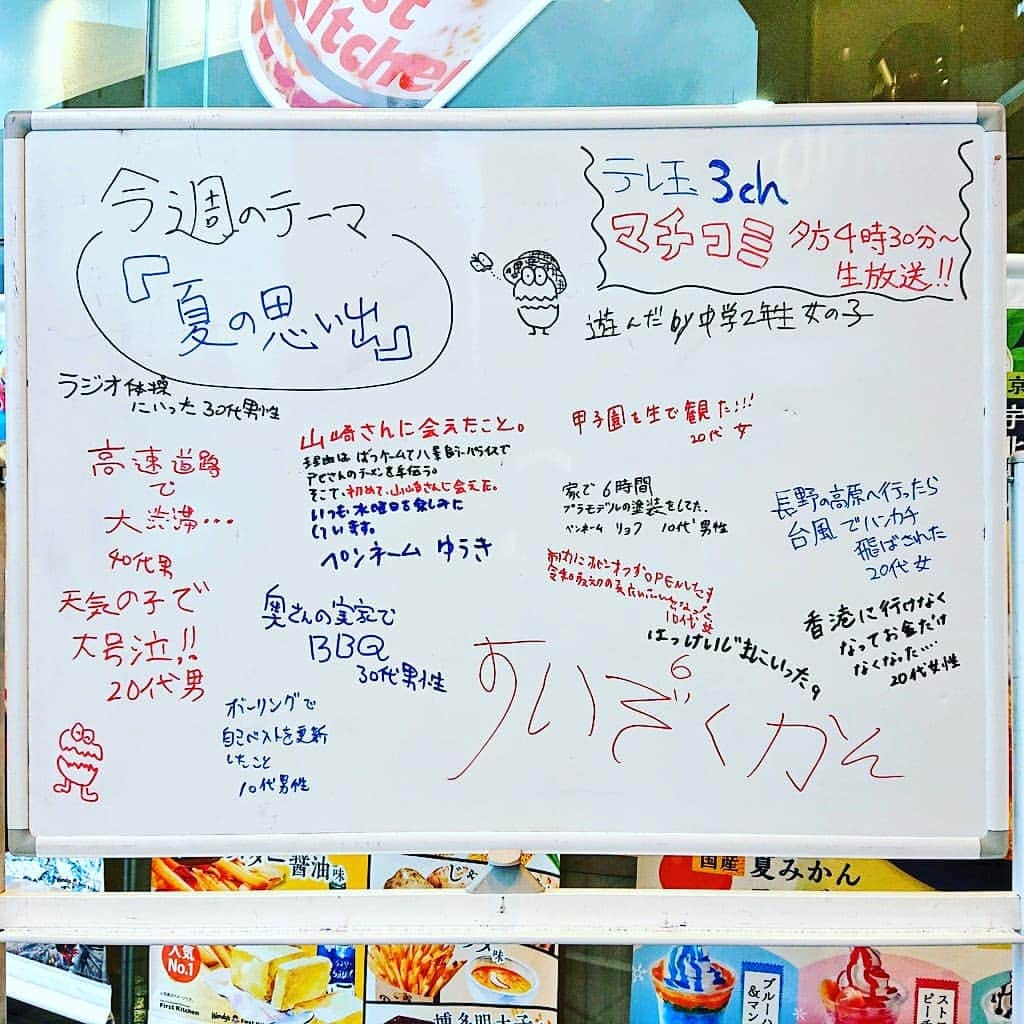 今週のテーマ
『夏の思い出』
テレ玉 3ch
マチコミ 夕方4時30分~
生放送!!
遊んだ by 中学2年生 女の子
ラジオ体操
にいった 30代男性
高速道路
で
大渋滞…
40代男
天気の子で
大号泣!!
20代男
山崎さんに会えたこと。
理由は ばつゲームで八景島シーパライスで
そこで、初めて、山崎さんに会えた。
いつも水曜日を楽しみに
しています。
ペンネーム ゆうき
奥さんの実家で
BBQ
30代男性
ボーリングで
自己ベストを更新
したこと
10代男性
甲子園を生で観た!!!
20代 女
家で6時間
プラモデルの塗装をした.
ペンネーム リョフ 10代男性
OPENした
10代 女
はっけいじまにいった
6
すいぞくかん
長野の高原へ行ったら
台風でハンカチ
飛ばされた
20代 女
香港に行けなく
なってお金だけ
なくなった….
20代女性
st
Kitchen
醤油味
人気
No.1
First Kitchen
Wendy's
国産
夏みかん
ブルーハ
&マン
スト
ピー
味
博多明太子
京
宇